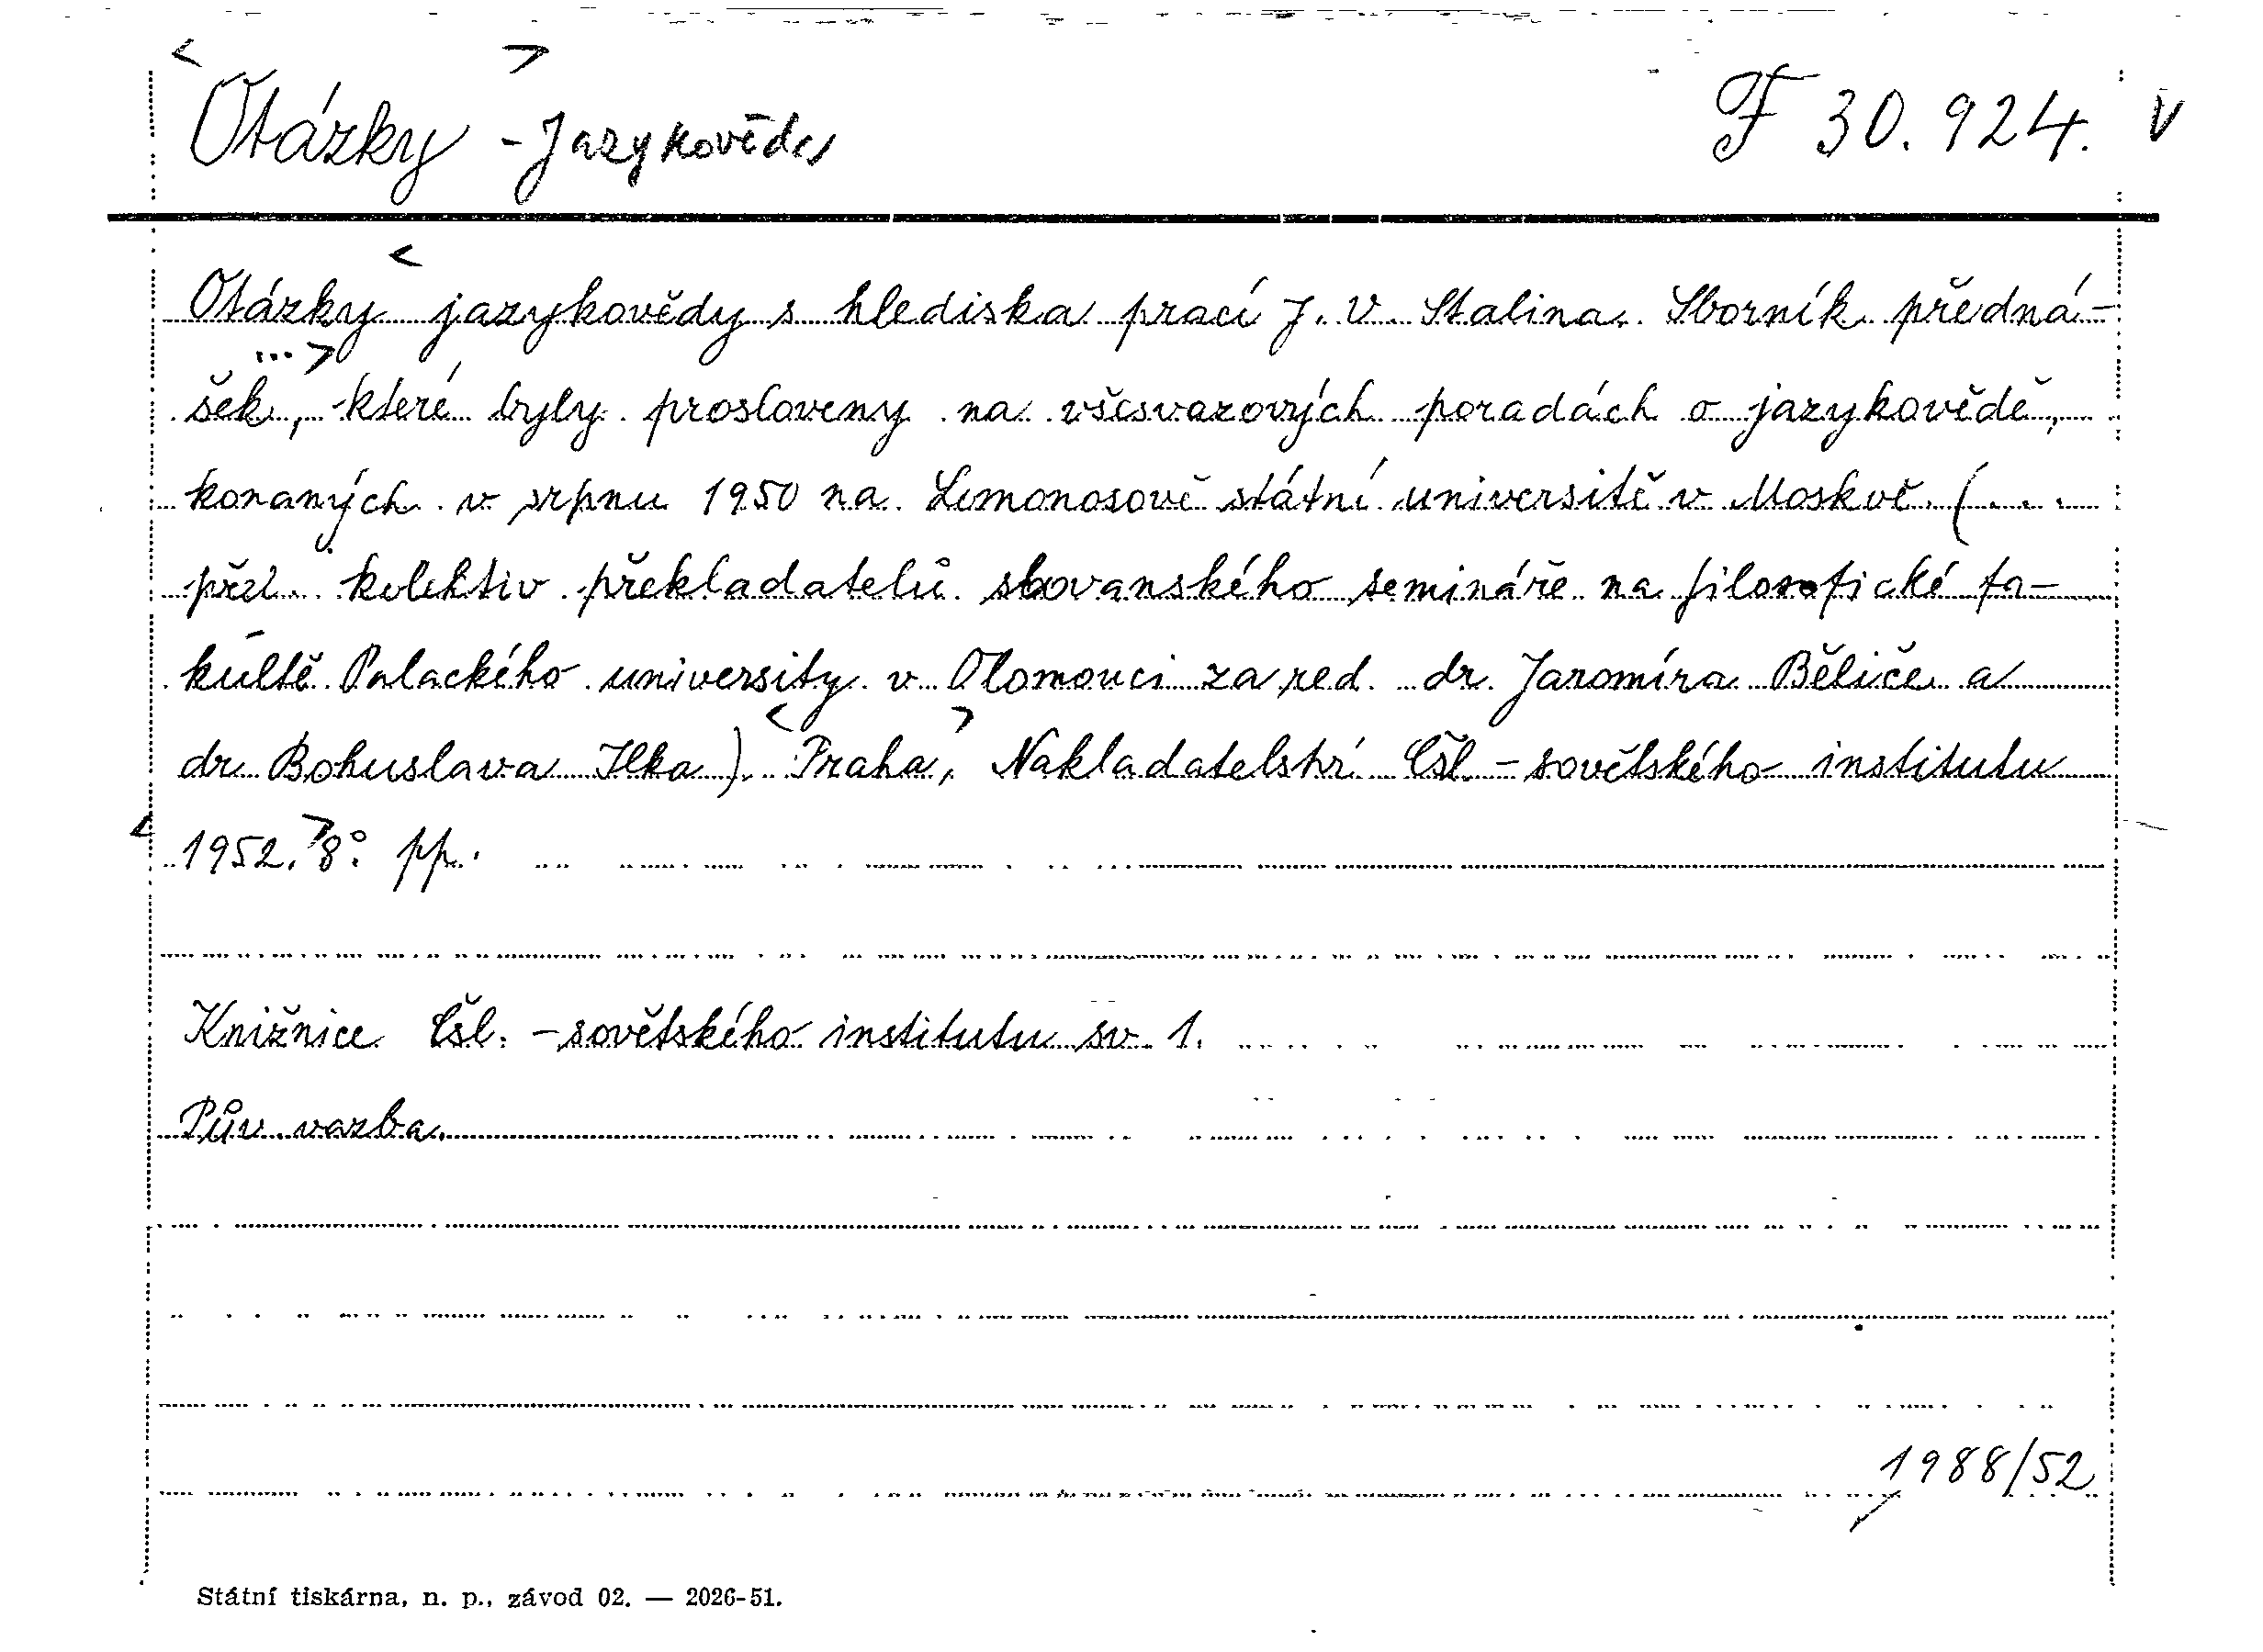 < Otázky > - Jazykovědy F 30.924. V
<
Otázky jazykovědy s hlediska prací J. V. Stalina. Sborník předná-
... >
šek, které byly prosloveny na všesvazových poradách o jazykovědě,
konaných v srpnu 1950 na Lomonosově státní universitě v Moskvě. (. . .
přel. kolektiv překladatelů slovanského semináře na filosofické fa-
kultě Palackého university v Olomouci za red. dr. Jaromíra Běliče a
dr. Bohuslava Ilka). < Praha, > Nakladatelství Čsl. - sovětského institutu
< 1952. > 8°. pp.
Knižnice Čsl. - sovětského institutu sv. 1.
Pův. vazba.
1988/52
Státní tiskárna, n. p., závod 02. — 2026-51.